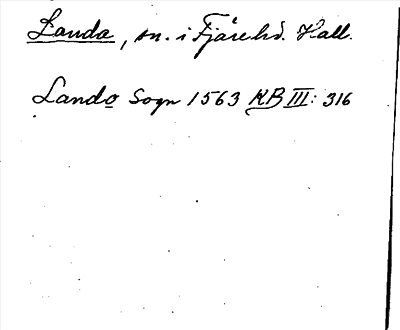 Landa, sn. i Fjäre hd. Hall.
Lando Sogn 1563 KB III: 316